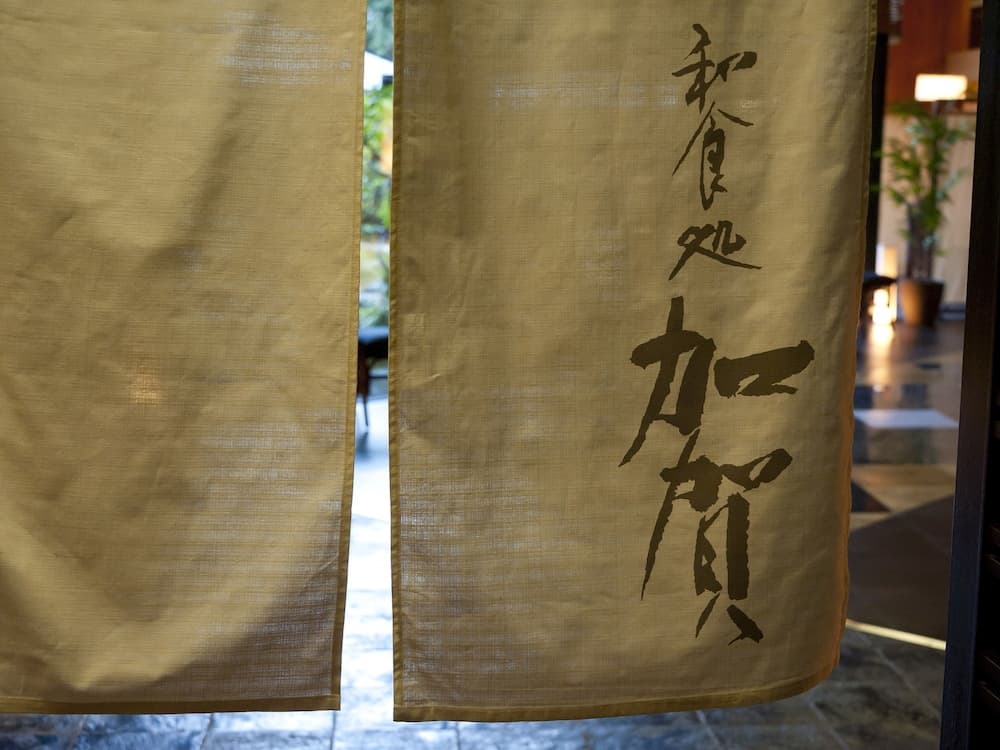 和食処
加賀